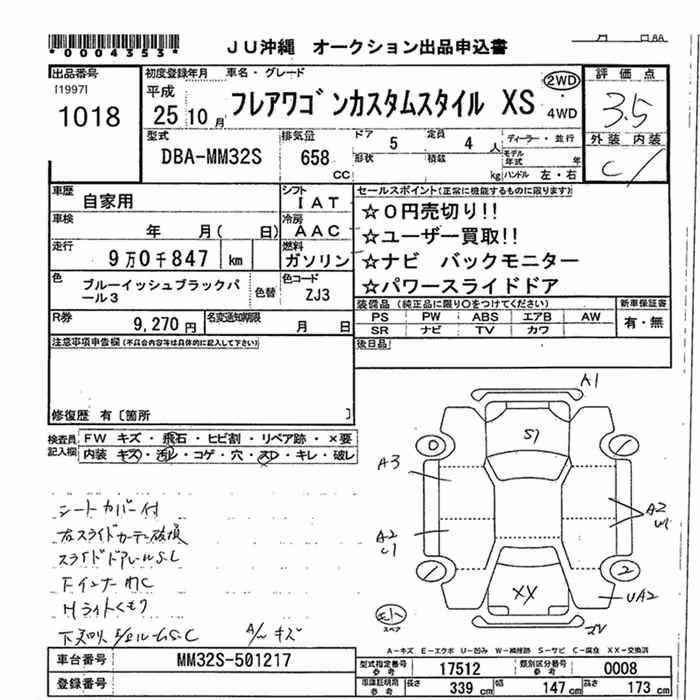 *0004353*
JU沖縄 オークション出品申込書
出品番号
[1997]
1018
初度登録年月
平成
25 10 月
車名・グレード
フレアワゴンカスタムスタイル XS
2WD
・
4WD
評価点
3.5
外装 内装
C /
型式
DBA-MM32S
排気量
658
CC
ドア 5
形状
定員 4 人
積載 kg
ディーラー・並行
モデル年式 年
ハンドル 左・右
車歴 自家用
シフト IAT
車検 年 月( 日)
冷房 AAC
走行 9万0千847 km
燃料 ガソリン
色 ブルーイッシュブラックパール3
色替
色コード ZJ3
R券 9,270 円
名変通知期限 月 日
セールスポイント(正常に機能するものに限ります)
☆0円売切り!!
☆ユーザー買取!!
☆ナビ バックモニター
☆パワースライドドア
装備品 (純正品に限り○をつけてください)
PS PW ABS エアB AW
SR ナビ TV カワ
新車保証書
有・無
後日品
注意事項申告欄(不具合内容等は具体的に記入して下さい)
修復歴 有 [箇所 ]
検査員記入欄
FW キズ・飛石・ヒビ割・リペア跡・×要
内装 キズ・汚レ・コゲ・穴・スレ・キレ・破レ
シートカバー付
右スライドカーテン破損
スライドドアレールS.C
Fインナー内C
Hライトくもり
A1
S1
0
/
A3
A2
C1
A2
W1
/
2
XX
UA2
スペア
A-キズ E-エクボ U-凹み W-補修跡 S-サビ C-腐食 XX-交換済
車台番号 MM32S-501217
登録番号
型式指定番号 参考 17512
類別区分番号 参考 0008
車庫証明用 参考
長さ 339 cm
幅 147 cm
高さ 173 cm